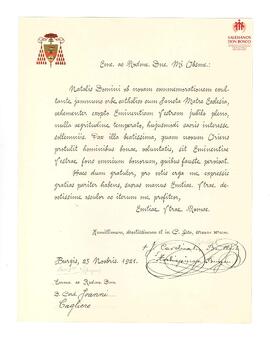 SALESIANOS
DON BOSCO
Eme. ac Rvdme. Dne. Mi Obsme.:
Natalis Domini ob novam commemorationem exul-
tante jammunc orbe catholico cum Sancta Matre Ecclesia,
vehementer exopto Eminentiam Vestram jubilo pleno,
nulla aegritudine temperato, hujusmodi sacris interesse
sollemniis. Pax illa beatissima, quam novam Oriens
protulit hominibus bonae, voluntatis, sit Eminentiae
Vestrae fons omnium bonorum, quibus fauste perfruat.
Haec dum gratulor, pro votis erga me expressis
gratias pariter habens, sacras manus Emtiae. Vrae. devo-
tissime osculor ac iterum me profiteor,
Emtiae. Vrae. Romae.
Humillimum, devotissimum et in C. Jto,
Burgis, 23 Novbris. 1921.
+ J. Cardinalis
Archiepiscopus
Emmo. ac Rvdmo. Dno.
D. Card. Joanni
Cagliero